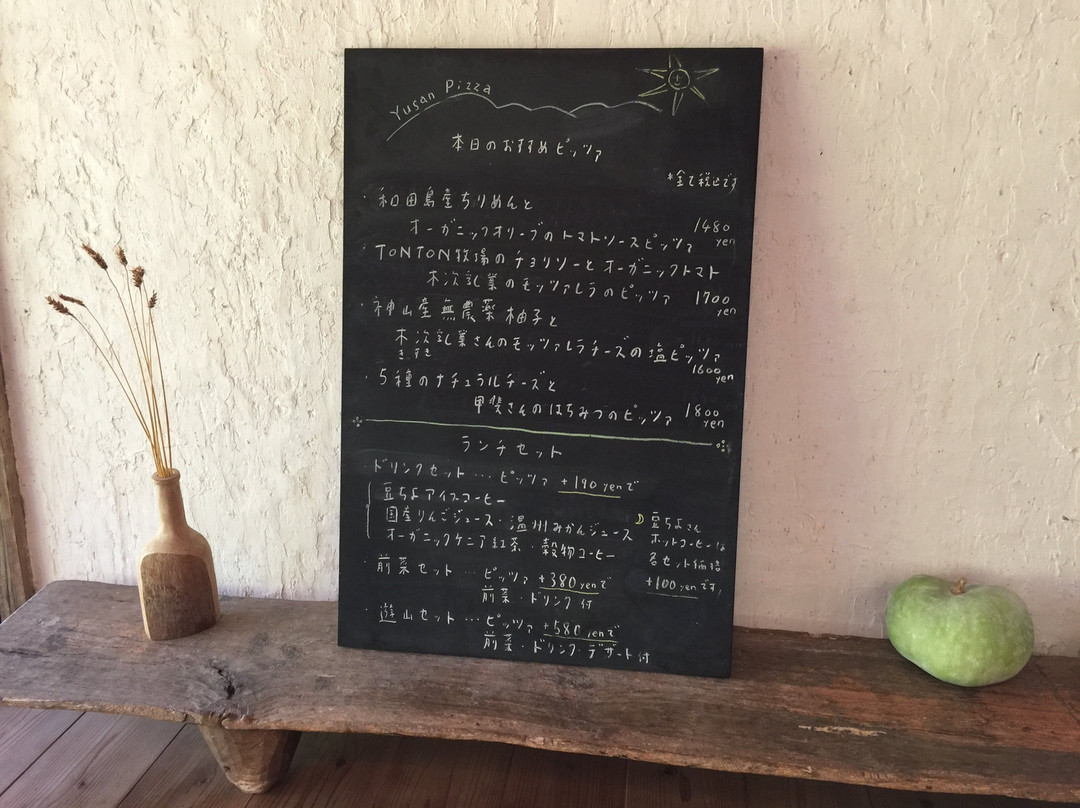 Yusan Pizza
本日のおすすめピッツァ
*全て税込です
・和田島産ちりめんと
オーガニックオリーブのトマトソースピッツァ 1480 yen
・TONTON牧場のチョリソーとオーガニックトマト
木次乳業のモッツァレラのピッツァ 1700 yen
・神山産無農薬柚子と
木次乳業さんのモッツァレラチーズの塩ピッツァ
きすき
1600 yen
・5種のナチュラルチーズと
甲斐さんのはちみつのピッツァ 1800 yen
ランチセット
・ドリンクセット…ピッツァ +190 yenで
豆ちよアイスコーヒー
国産りんごジュース・温州みかんジュース
オーガニックケニア紅茶・穀物コーヒー
豆ちよさん
ホットコーヒーは
各セット価格
+100 yenです。
・前菜セット…ピッツァ +380 yenで
前菜・ドリンク付
・遊山セット…ピッツァ +580 yenで
前菜・ドリンク・デザート付